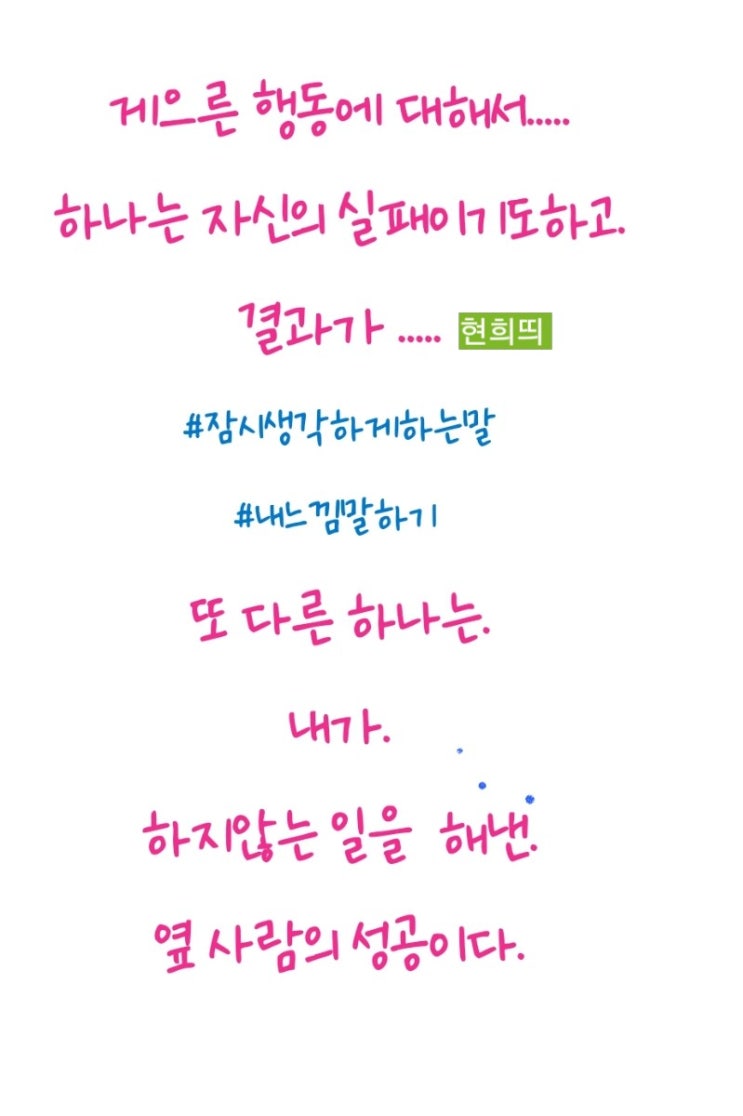 게으른 행동에 대해서.....
하나는 자신의 실패이기도하고.
결과가 ..... 현희띄
#잠시생각하게하는말
#내느낌말하기
또 다른 하나는.
내가.
하지않는 일을 해낸.
옆 사람의 성공이다.